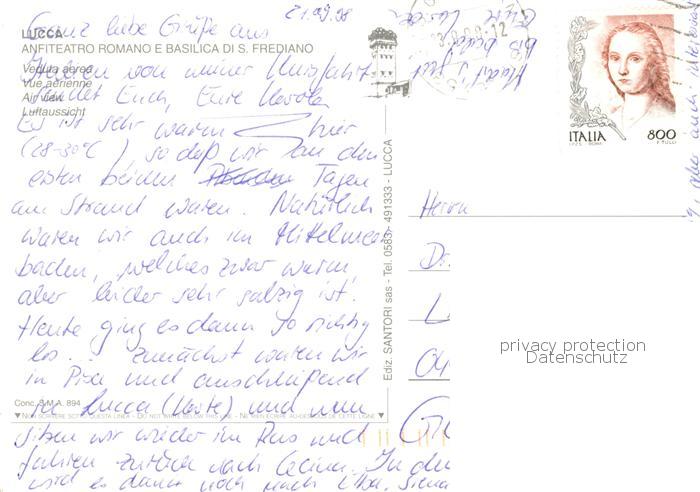 21.09.98
Ganz liebe Grüße aus
LUCCA
ANFITEATRO ROMANO E BASILICA DI S. FREDIANO
Veduta aerea
Italien von meiner Kursfahrt
Vue aérienne
Air view
sendet Euch, Eure
Luftaussicht
Es ist sehr warm hier
(28-30°C), so daß wir an den
ersten beiden Tagen
am Strand waren. Natürlich
waren wir auch im Mittelmeer
baden, welches zwar warm,
aber leider sehr salzig ist.
Heute ging es dann so richtig
los... Zunächst waren wir
in Pisa und anschließend
Conc. S.M.A. 894
in Lucca (Karte) und nun
NON SCRIVERE SOTTO QUESTA LINEA - DO NOT WRITE BELOW THIS LINE - NE RIEN ECRIRE AU-DESSOUS DE CETTE LIGNE
sitzen wir wieder im Bus und
fahren zurück nach Cecina. In der
wird es dann noch nach Elba, Siena
Ediz. SANTORI sas - Tel. 0583 - 491333 - LUCCA
ITALIA 800
I.P.Z.S. ROMA F. TULLI
Herrn
Dr.
L
04
privacy protection
Datenschutz